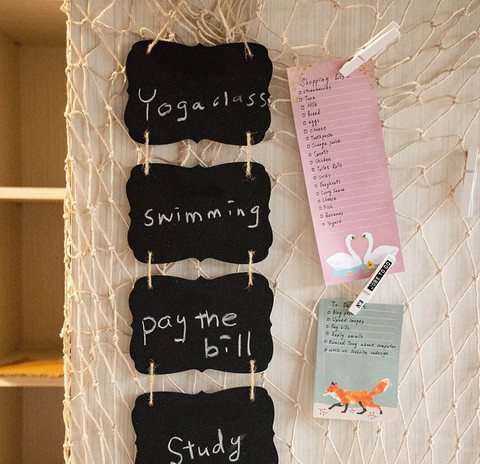 Yoga class
swimming
pay the
bill
Study
Shopping List
strawberries
Tuna
Milk
Bread
eggs
Cheese
Toothpaste
Orange Juice
Carrots
Chicken
Toilet Rolls
Doughnuts
Curry Sauce
Cheese
Fish
Bananas
Yogurt
To Do
Upload Images
Pay bills
Reply emails
Remind Tony about computer
work on Website redesign